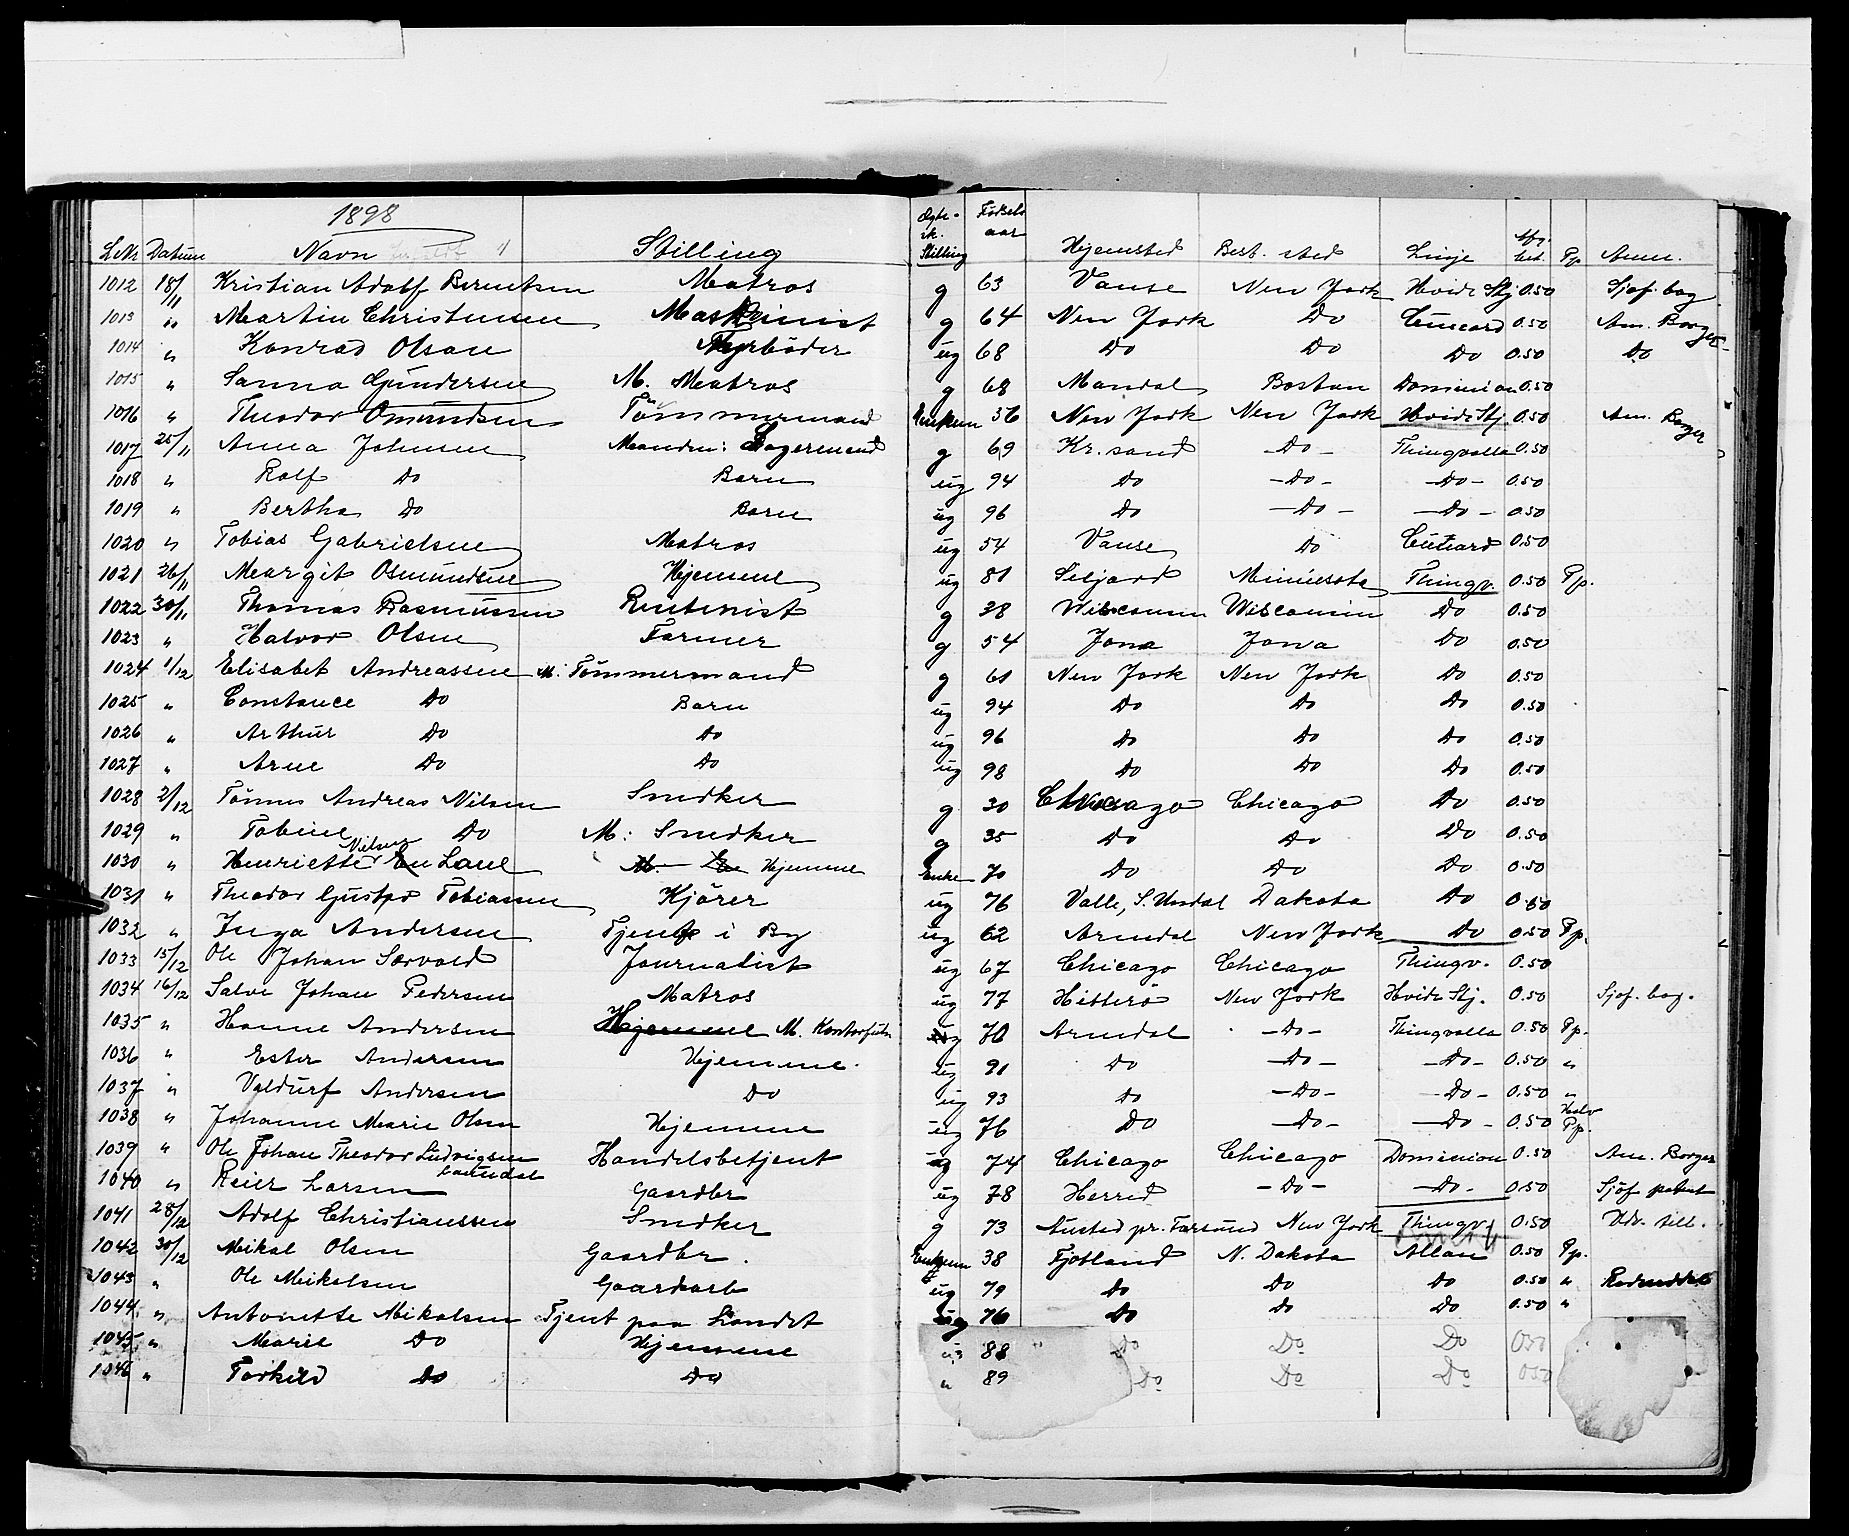 1898
L.Nr Datum Navn Stilling Stilling Fødsels aar Hjemsted Best. sted Linje Pp Anm.
1012 18/11 Kristian Adolf Berntsen Matros g 63 Vanse New York Hvide Stj 0.50 Sjøf. bog
1013 " Martin Christensen Maskinist g 64 New York Do Cunard 0.50 Am. Borger
1014 " Konrad Olsen ug 68 Do Do Do 0.50 Do
1015 " Sanna Gundersen M. Matros g 68 Mandal Boston Dominion 0.50
1016 " Theodor Omundsen Tømmermand Enkem 56 New York New York Hvide Stj. 0.50 Am. Borger
1017 25/11 Anna Johnsen Manden: Lagermand g 69 Kr. sand - Do - Thingvalla 0.50
1018 " Rolf Do Barn ug 94 Do - Do - - Do - 0.50
1019 " Bertha Do Barn ug 96 Do - Do - - Do - 0.50
1020 " Tobias Gabrielsen Matros ug 54 Vanse Do Cunard 0.50
1021 26/11 Margit Osmundsen Hjemme ug 81 Seljord Minnesota Thingv. 0.50 Pp.
1022 30/11 Thomas Rasmussen Rentenist g 38 Wisconsin Wisconsin Do 0.50
1023 " Halvor Olsen Farmer g 54 Jowa Jowa Do 0.50
1024 1/12 Elisabet Andreassen M. Tømmermand g 61 New York New York Do 0.50
1025 " Constance Do Barn ug 94 Do Do Do 0.50
1026 " Arthur Do Do ug 96 Do Do Do 0.50
1027 " Arne Do Do ug 98 Do Do Do 0.50
1028 2/12 Tønnes Andreas Nilsen Snedker g 30 Chicago Chicago Do 0.50
1029 " Tobine Do M: Snedker g 35 Do Do Do 0.50
1030 " Henriette Nilsen Lane Hjemme Enke 70 Do Do Do 0.50
1031 " Theodor Gustav Tobiassen Kjører ug 76 Valle, S. Undal Dakota Do 0.50
1032 " Inga Andersen Tjent i By ug 62 Arendal New York Do 0.50 Pp.
1033 15/12 Ole Johan Særvold Journalist ug 67 Chicago Chicago Thingv. 0.50
1034 16/12 Salve Johan Pedersen Matros ug 77 Hitterø New York Hvide Stj. 0.50 Sjøf. bog.
1035 " Hanne Andersen Hjemme M. g 70 Arendal - Do - Thingvalla 0.50 Pp.
1036 " Ester Andersen Hjemme. ug 91 Do - Do - - Do - 0.50 "
1037 " Valdurf Andersen Do ug 93 do - Do - - Do - 0.50 "
1038 " Johanne Marie Olsen Hjemme ug 76 Do - Do - - Do - 0.50 Halv Pp.
1039 " Ole Johan Theodor Ludvigsen Handelsbetjent ug 74 Chicago Chicago Dominion 0.50 Am. Borger
1040 " Reier Larsen Gaardbr ug 78 Herred - Do - - Do - 0.50 Sjøf. patent
1041 28/12 Adolf Christianssen Snedker g 73 pr. Farsund New York Thingv. 0.50 Udr. till.
1042 30/12 Mikal Olsen Gaardbr. Enkem 38 Fjotland N. Dakota Allan 0.50 Pp.
1043 " Ole Mikalsen Gaardarb ug 79 Do Do Do 0.50 "
1044 " Antonette Mikalsen Tjent paa Landet ug 76 Do do Do 0.50 "
1045 " Marie Do Hjemme ug 88 Do Do Do 050
1046 " Torkild Do Do " 89 Do Do Do 050